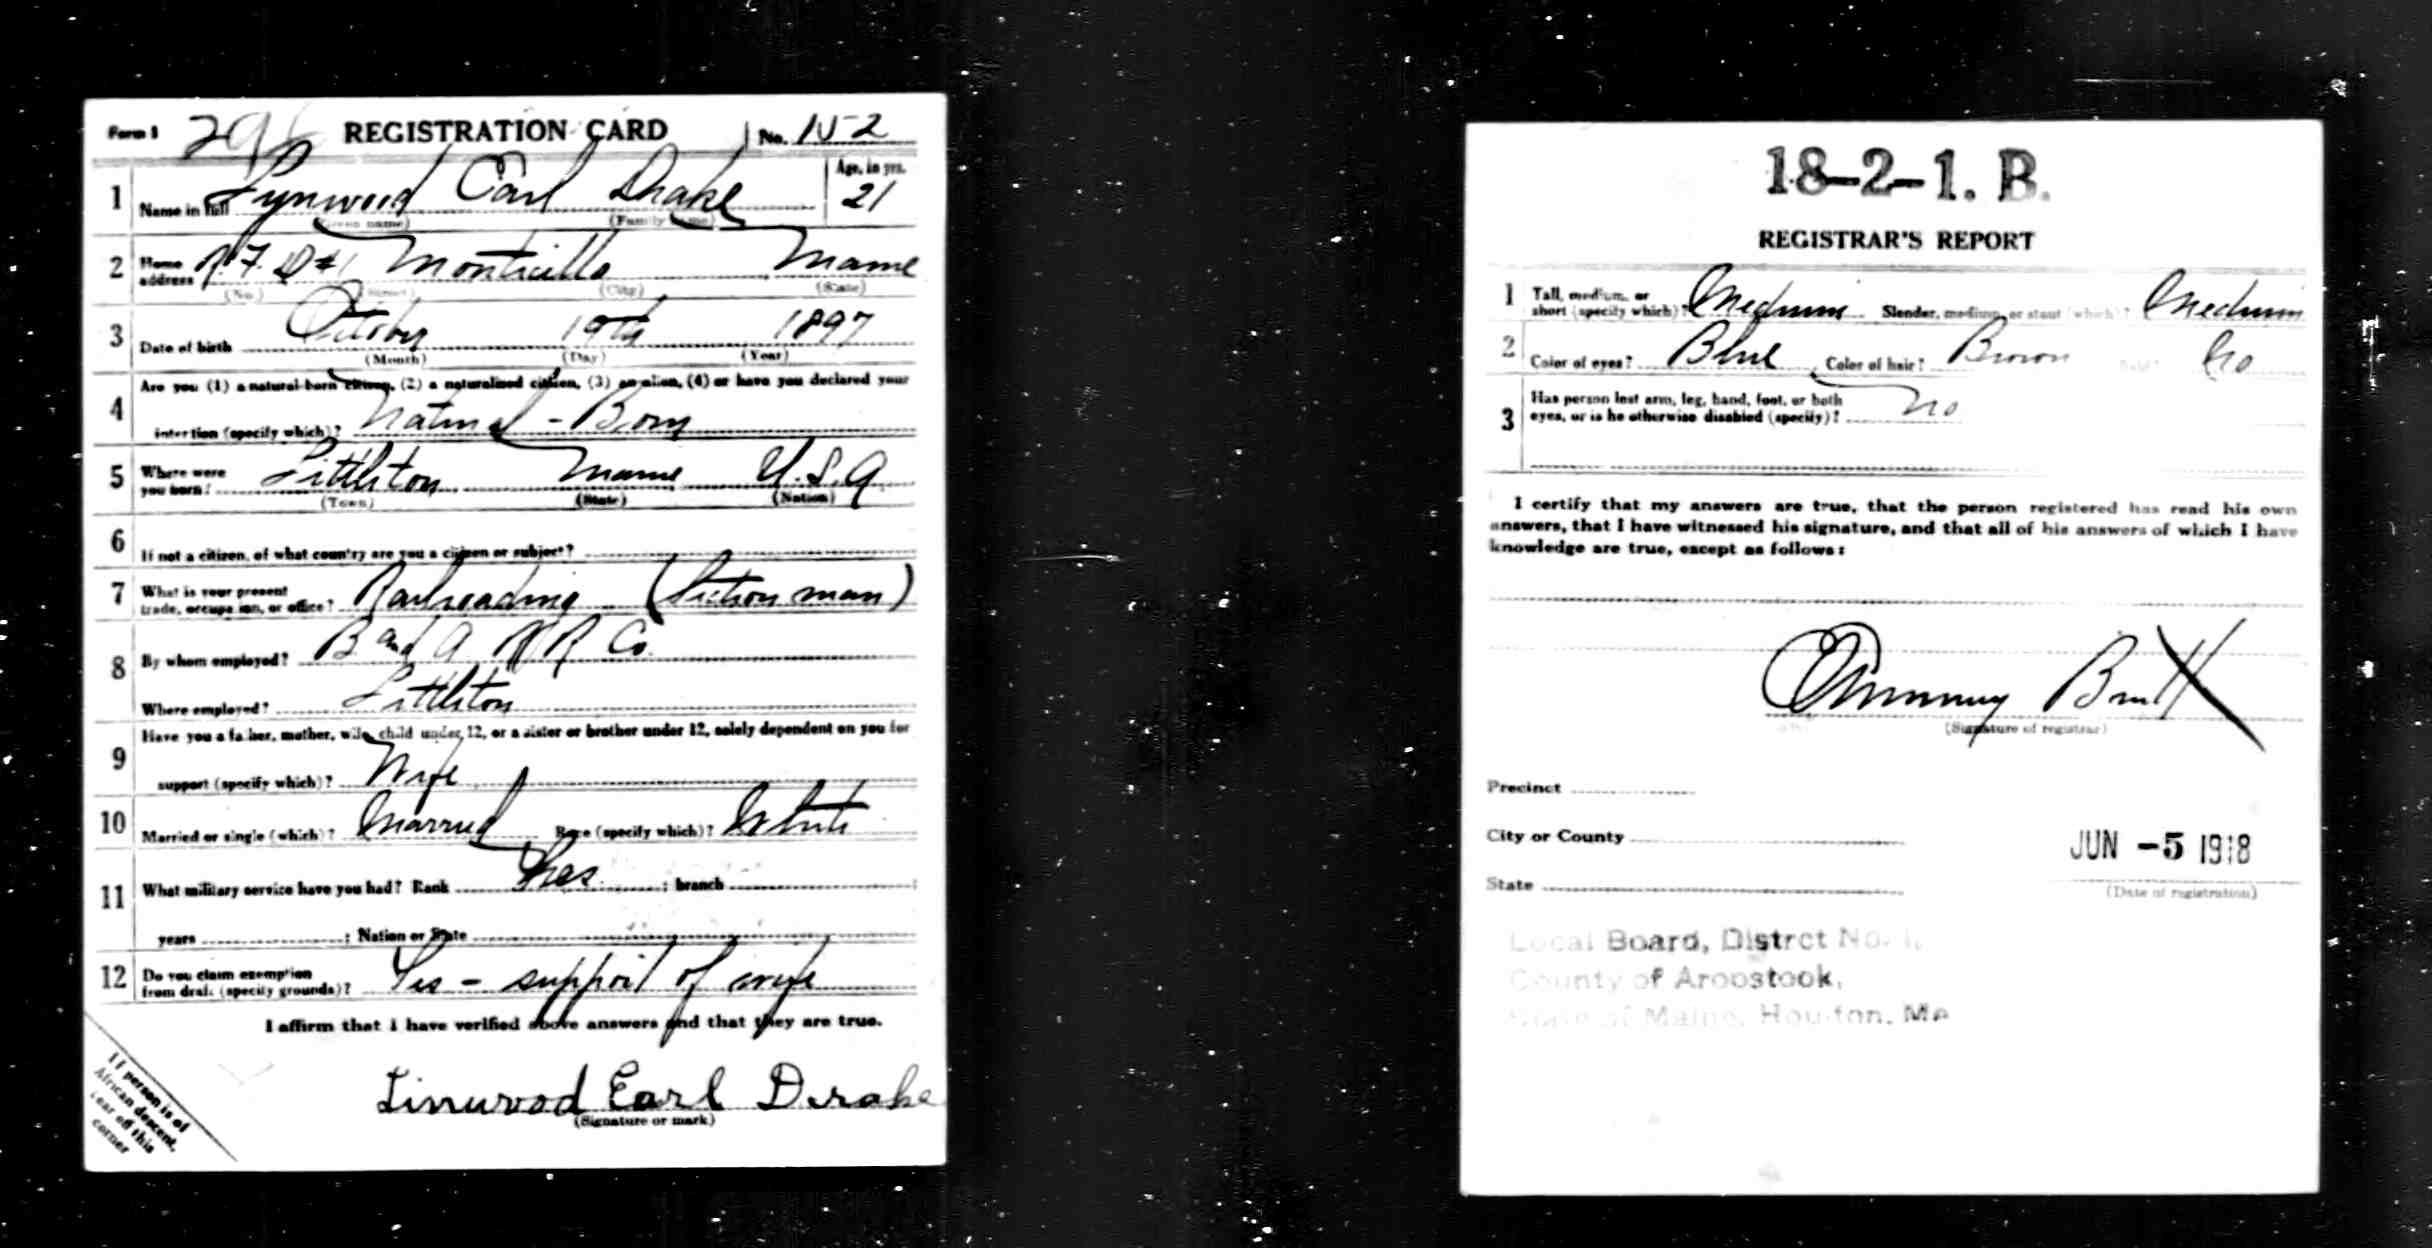 Form 1 296 REGISTRATION CARD No. 152
1 Name in full Lynwood Earl Drake Age, in yrs. 21
(Given name) (Family name)
2 Home address R.F.D #1 Monticello Maine
(No.) (Street) (City) (State)
3 Date of birth October 19th 1897
(Month) (Day) (Year)
4 Are you (1) a natural-born citizen, (2) a naturalized citizen, (3) an alien, (4) or have you declared your
intention (specify which)? Natural - Born
5 Where were you born? Littleton Maine U.S.A
(Town) (State) (Nation)
6 If not a citizen, of what country are you a citizen or subject?
7 What is your present
trade, occupation, or office? Railroading (Section man)
8 By whom employed? B and A R R Co.
Where employed? Littleton
9 Have you a father, mother, wife, child under 12, or a sister or brother under 12, solely dependent on you for
support (specify which)? Wife
10 Married or single (which)? Married Race (specify which)? White
11 What military service have you had? Rank ; branch
years ; Nation or State
12 Do you claim exemption
from draft (specify grounds)? Yes - support of wife
I affirm that I have verified above answers and that they are true.
Linwood Earl Drake
(Signature or mark)
If person is of
African descent,
tear off this
corner
18-2-1. B.
REGISTRAR'S REPORT
1 Tall, medium, or
short (specify which)? Medium Slender, medium, or stout (which)? Medium
2 Color of eyes? Blue Color of hair? Brown Bald? No
3 Has person lost arm, leg, hand, foot, or both
eyes, or is he otherwise disabled (specify)? No
I certify that my answers are true, that the person registered has read his own
answers, that I have witnessed his signature, and that all of his answers of which I have
knowledge are true, except as follows:
(Signature of registrar)
Precinct
City or County
State
JUN -5 1918
(Date of registration)
Local Board, Distrct No. 1,
County of Aroostook,
State of Maine, Houlton, Me